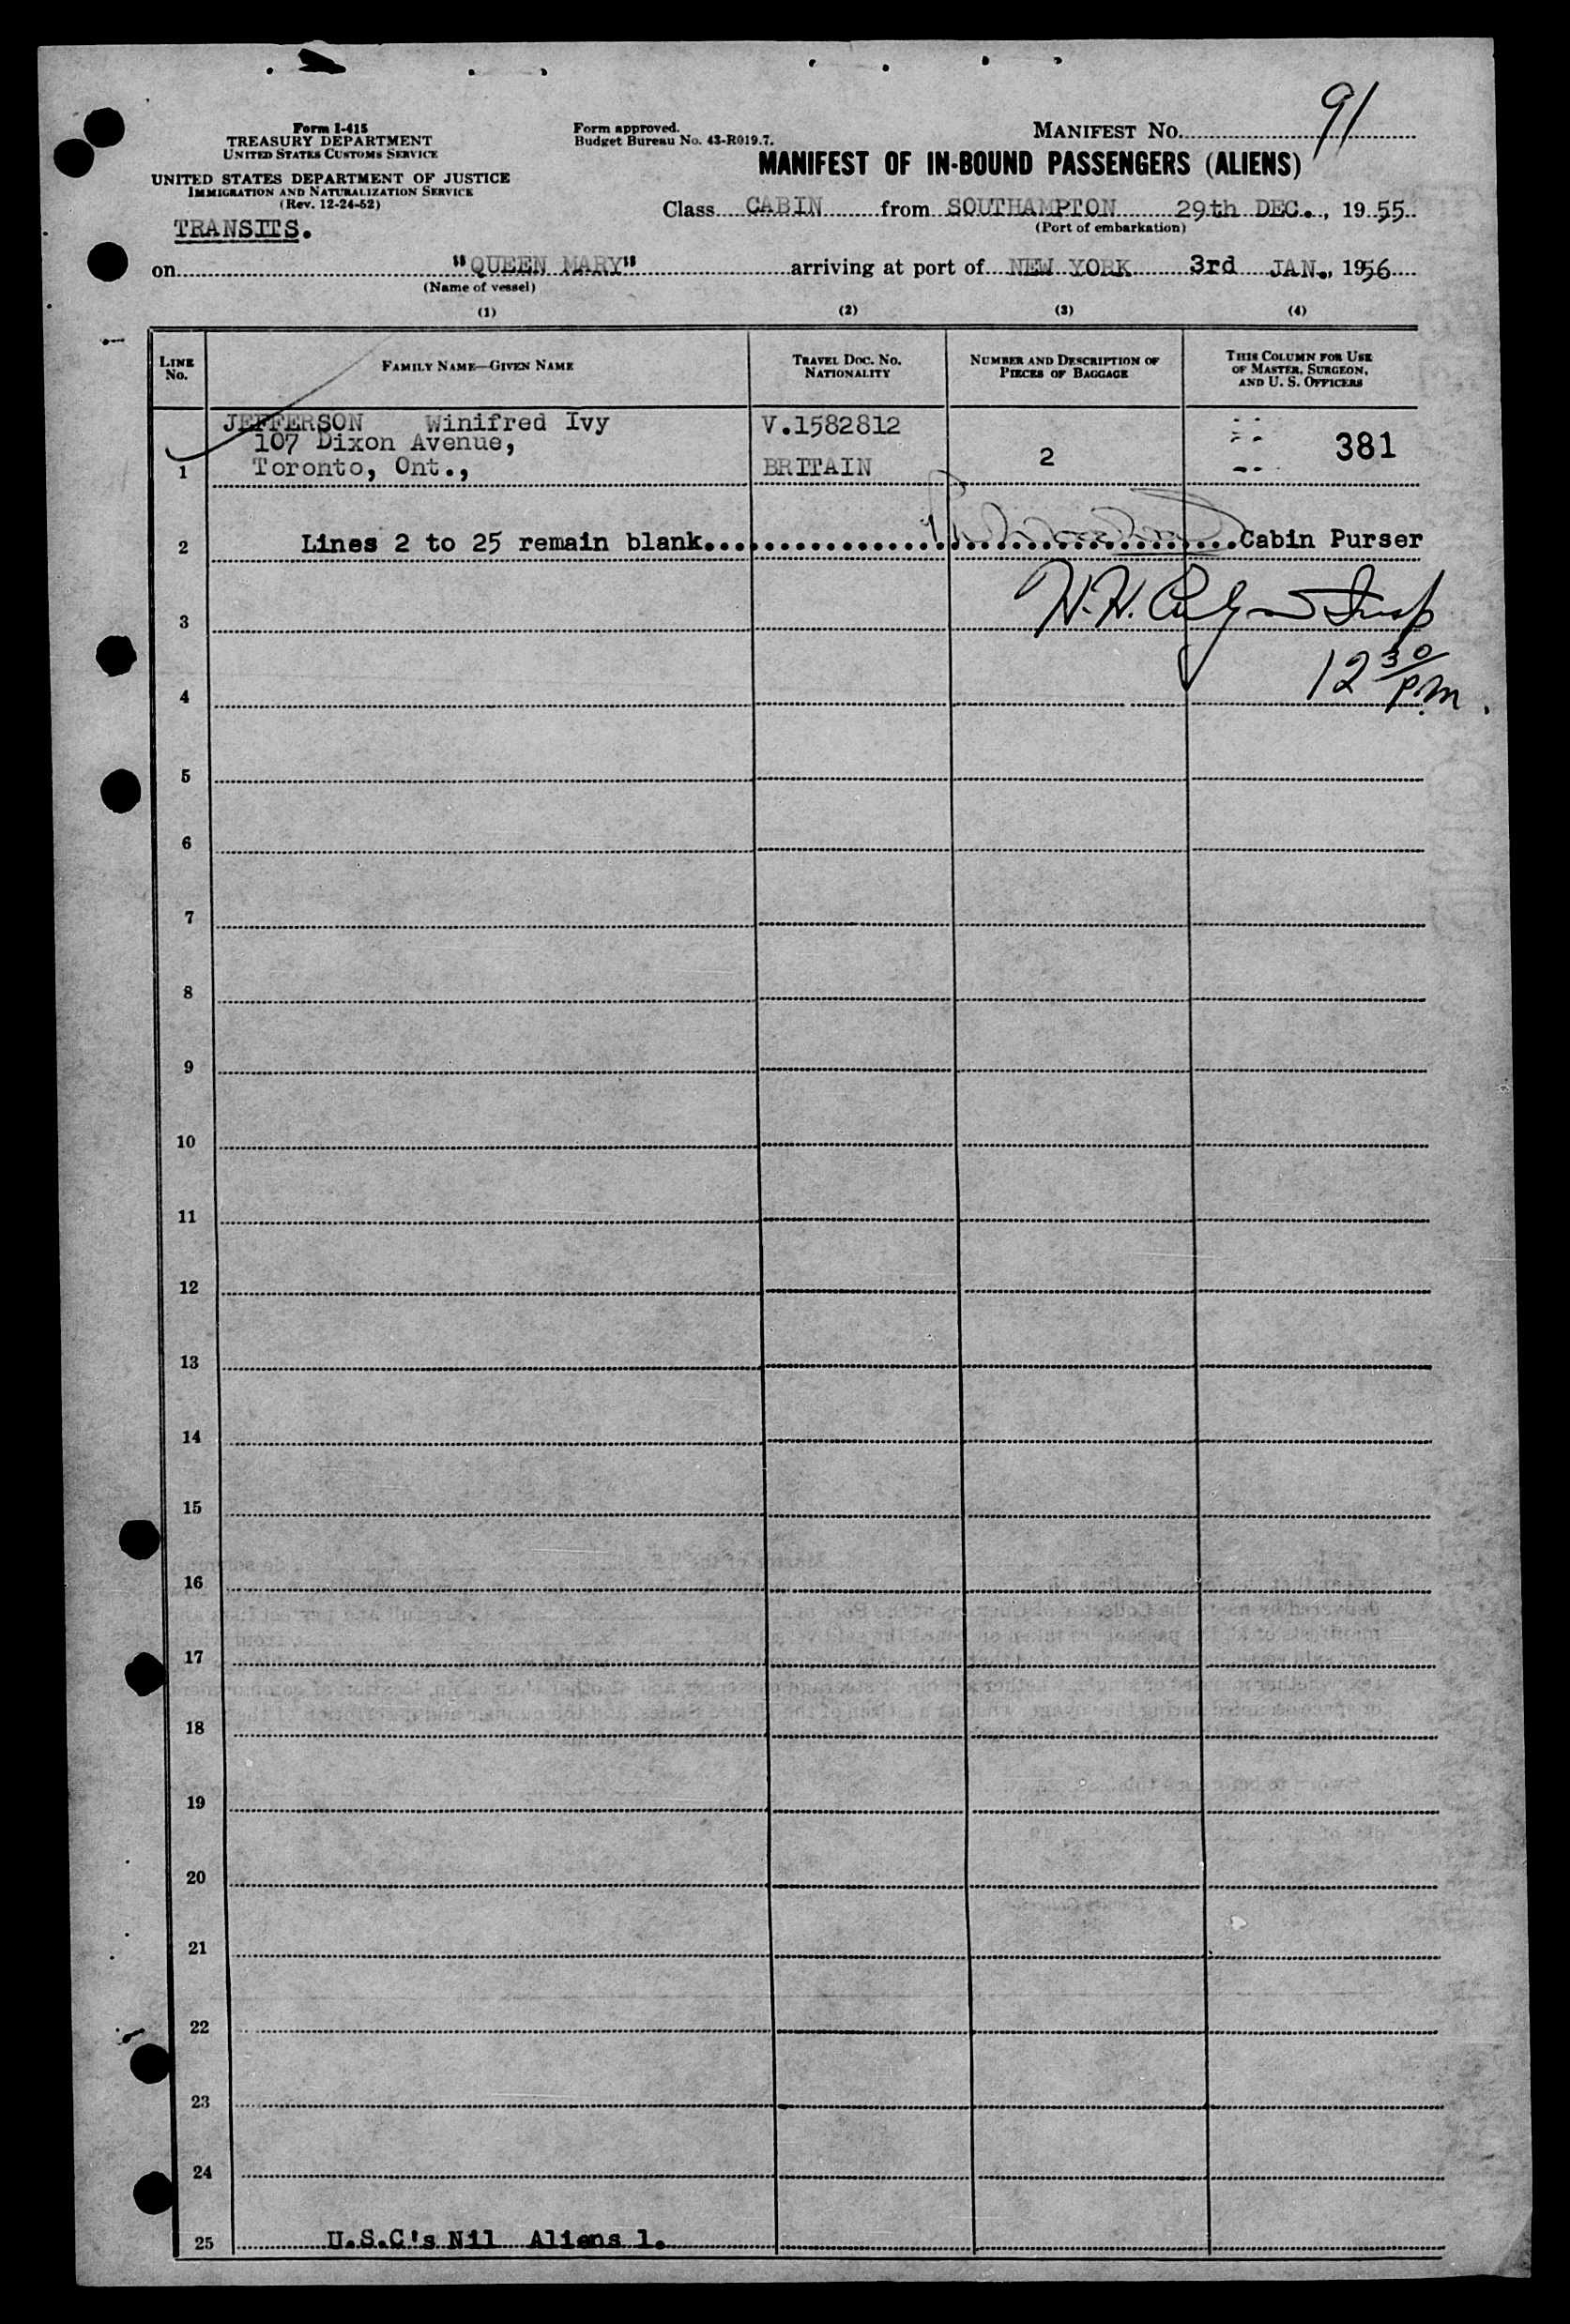 91
Form I-415
TREASURY DEPARTMENT
UNITED STATES CUSTOMS SERVICE
UNITED STATES DEPARTMENT OF JUSTICE
IMMIGRATION AND NATURALIZATION SERVICE
(Rev. 12-24-52)
TRANSITS.
Form approved.
Budget Bureau No. 43-R019.7.
MANIFEST NO.
MANIFEST OF IN-BOUND PASSENGERS (ALIENS)
Class CABIN from SOUTHAMPTON 29th DEC., 1955
(Port of embarkation)
on "QUEEN MARY" arriving at port of NEW YORK 3rd JAN., 1956
(Name of vessel)
(1) (2) (3) (4)
LINE NO.
FAMILY NAME—GIVEN NAME
TRAVEL DOC. NO. NATIONALITY
NUMBER AND DESCRIPTION OF PIECES OF BAGGAGE
THIS COLUMN FOR USE OF MASTER, SURGEON, AND U. S. OFFICERS
JEFFERSON Winifred Ivy V.1582812
107 Dixon Avenue, 381
1 Toronto, Ont., BRITAIN 2
2 Lines 2 to 25 remain blank. Cabin Purser
3 H.H.
4 12 30 P.M.
5
6
7
8
9
10
11
12
13
14
15
16
17
18
19
20
21
22
23
24
25 U.S.C's Nil Aliens 1.